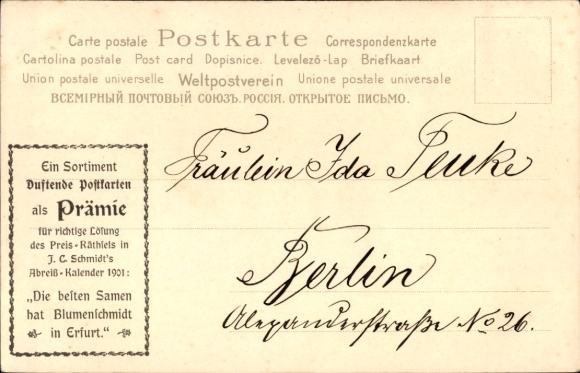 Carte postale Postkarte Correspondenzkarte
Cartolina postale Post card Dopisnice. Levelező-Lap Briefkaart
Union postale universelle Weltpostverein Unione postale universale
ВСЕМІРНЫЙ ПОЧТОВЫЙ СОЮЗЪ. РОССІЯ. ОТКРЫТОЕ ПИСЬМО.
Ein Sortiment
Duftende Postkarten
als Prämie
für richtige Löſung
des Preis-Räthſels in
J. C. Schmidt's
Abreiß-Kalender 1901:
„Die beſten Samen
hat Blumenſchmidt
in Erfurt."
Fräulein Ida Peuke
Berlin
Alexanderstraße No 26.